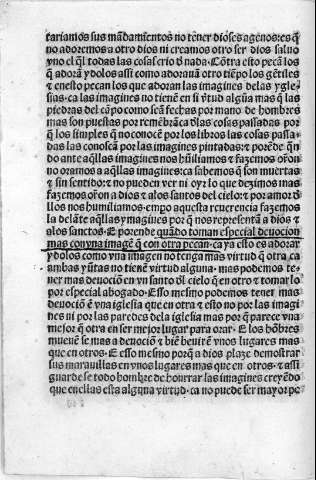 tariamos sus mãdamiẽtos no tener dioses agenos: es q̃
no adoremos a otro dios ni creamos otro ser dios saluo
vno el q̃l todas las cosas crio ⁊ da nada. Cõtra esto pecã los
q̃ adorã ydolos assi como adorauã otro tiẽpo los gẽtiles
⁊ en esto pecan los que adoran las imagines delas ygle-
sias. ca las imagines no tienẽ en si ṽtud algũa mas q̃ las
piedras del cãpo como seã fechas por mano de hombres
mas son puestas por remẽbrãça dlas cosas passadas por
q̃ los simples q̃ no conocẽ por los libros las cosas passa-
das las conoscã por las imagines pintadas: ⁊ porẽde q̃n
do ante aq̃llas imagines nos hũiliamos ⁊ fazemos oriõn
no oramos a aq̃llas imagines: ca sabemos q̃ son muertas
⁊ sin sentido: ⁊ no pueden ver ni oyr lo que dezimos mas
fazemos oriõn a dios ⁊ alos santos del cielo: ⁊ por amor d̃
llos nos humiliamos. empo aquesta reuerencia fazemos
la delãte aq̃llas ymagines por q̃ nos representã a dios ⁊
alos sanctos. E porende quãdo toman especial deuocion
mas con vna imagẽ q̃ con otra pecan. ca ya esto es adorar
ydolos como vna imagen no tenga mas virtud q̃ otra ca
ambas ṽtas no tienẽ virtud alguna. mas podemos te-
ner mas deuociõ en vn santo dl̃ cielo q̃ en otro ⁊ tomar lo
por especial abogado. Esso mesmo podemos tener mas
deuociõ ẽ vna iglesia que en otra ⁊ esto no por las imagi
nes ni por las paredes dela iglesia mas por q̃ parece vna
mejor q̃ otra en ser mejor lugar para orar. E los hõbres
mueuẽ se mas a deuociõ ⁊ biẽ beuirẽ vnos lugares mas
que en otros. E esso mesmo porq̃ a dios plaze demostrar
sus marauillas en vnos lugares mas que en otros. ⁊ assi
guarde se todo hombre de honrrar las imagines creyẽdo
que en ellas esta alguna virtud. ca no puede ser mayor pe